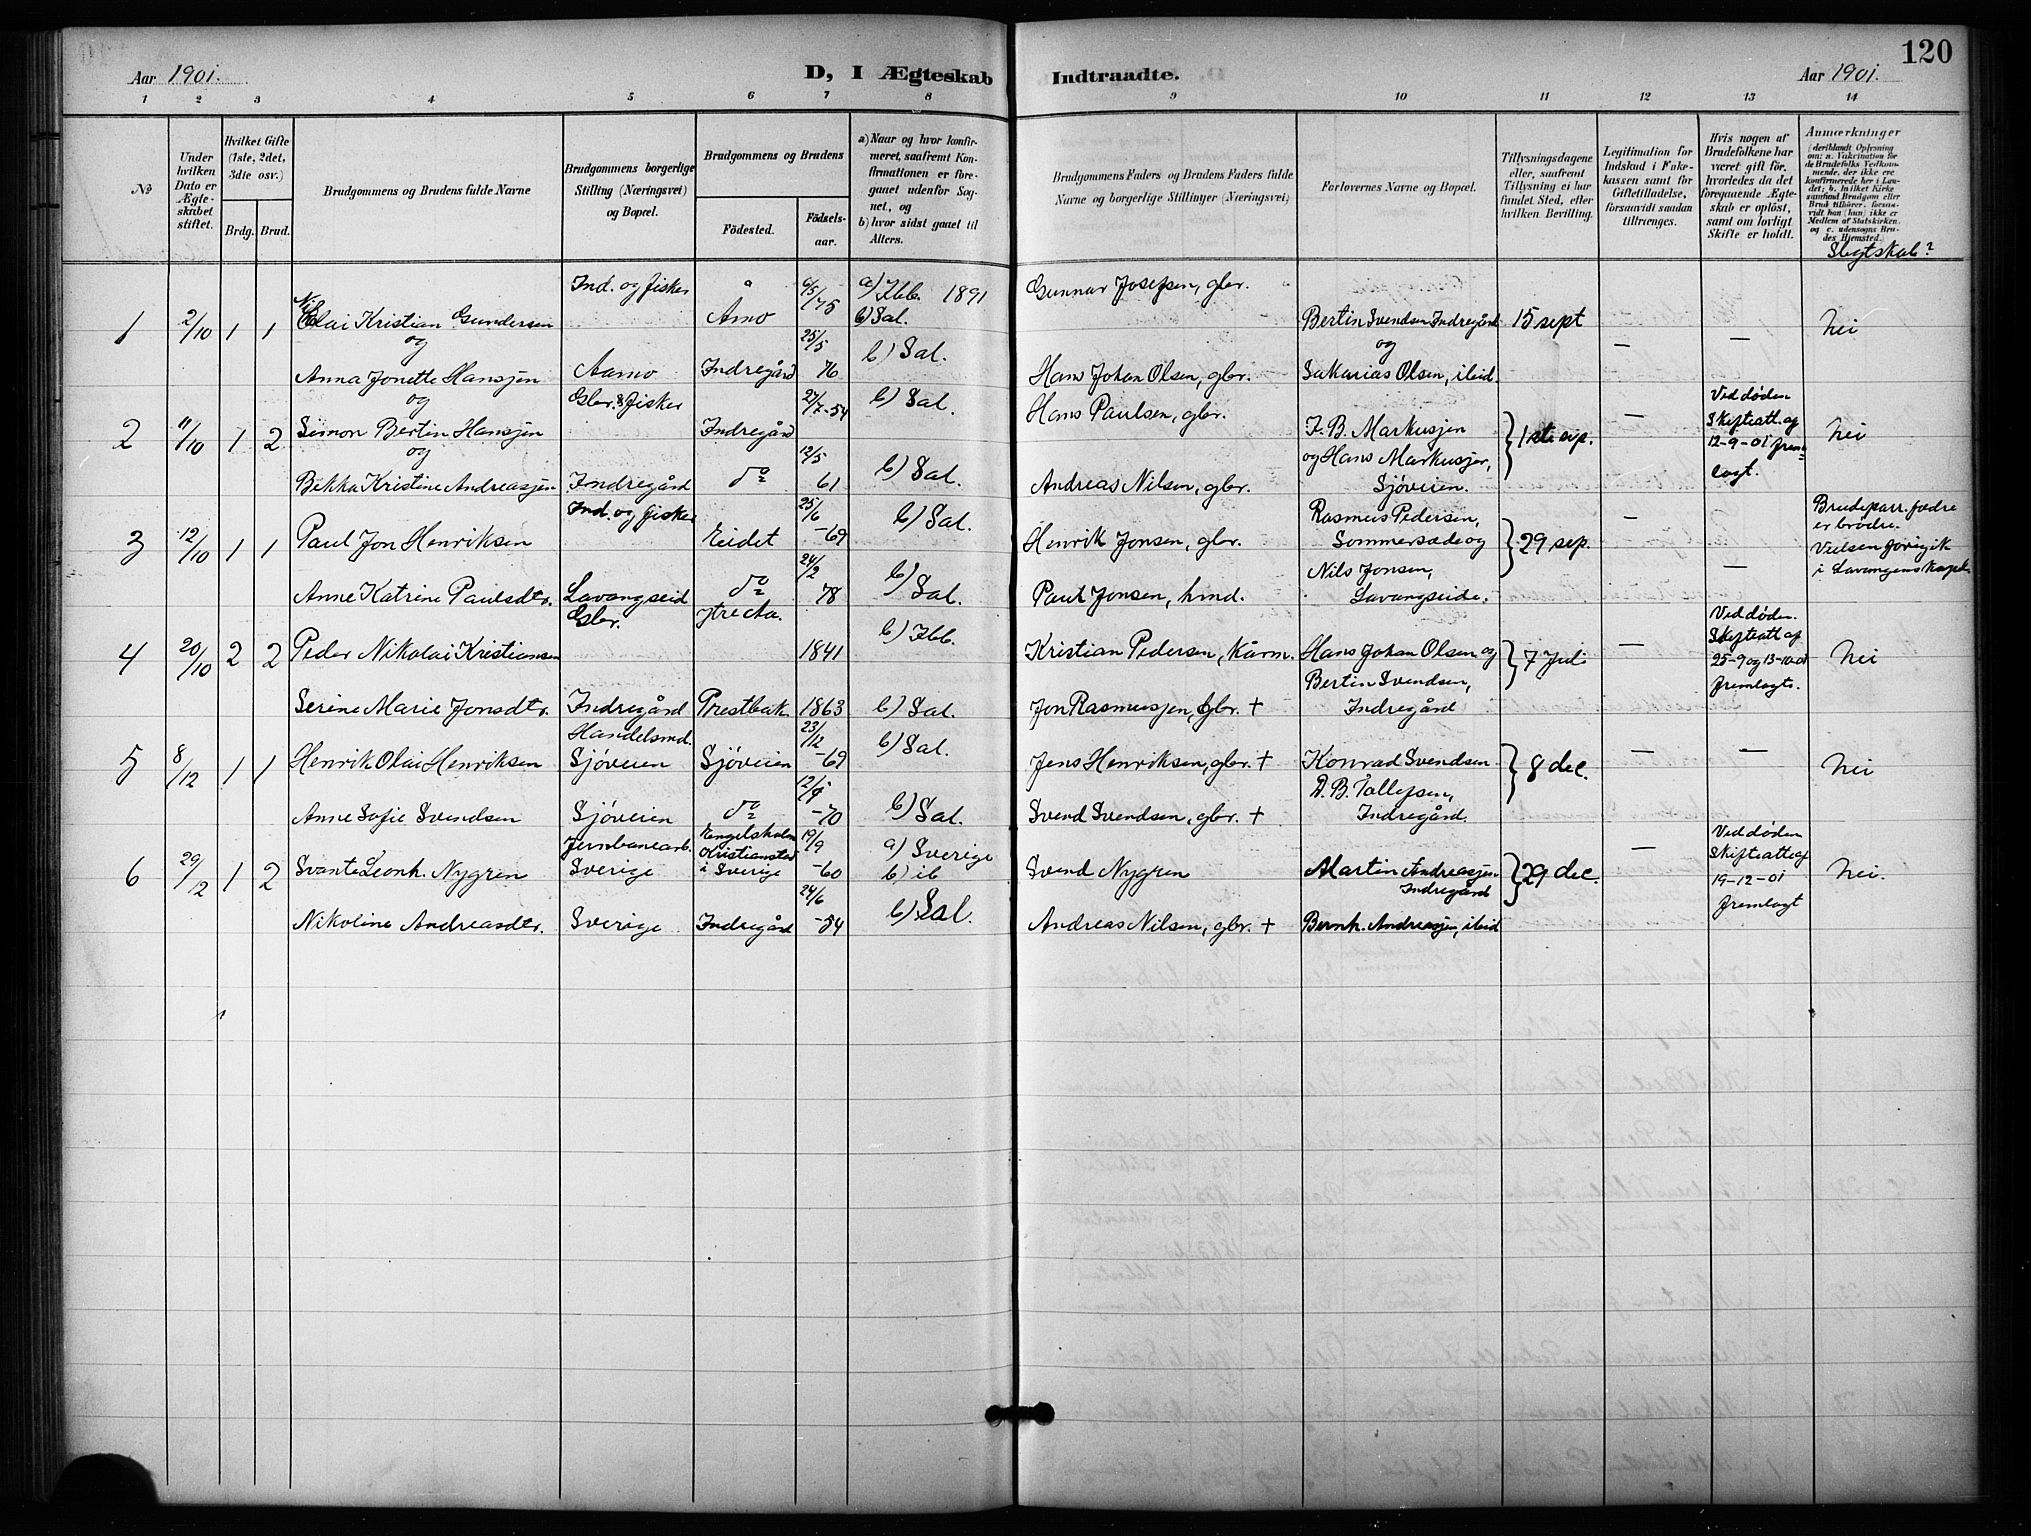 120
Aar 1901.
D, I Ægteskab Indtraadte.
Aar 1901.
1 2 3 4 5 6 7 8 9 10 11 12 13 14
No
Under hvilken Dato er Ægteskabet stiftet.
Hvilket Gifte (1ste, 2det, 3die osv.)
Brdg. Brud.
Brudgommens og Brudens fulde Navne
Brudgommens borgerlige Stilling (Næringsvei) og Bopæl.
Brudgommens og Brudens
Födested.
Födsels-aar.
a) Naar og hvor konfirmeret, saafremt Konfirmationen er foregaaet udenfor Sognet, og
b) hvor sidst gaaet til Alters.
Brudgommens Faders og Brudens Faders fulde Navne og borgerlige Stillinger (Næringsvei)
Forlovernes Navne og Bopæl.
Tillysningsdagene eller, saafremt Tillysning ei har fundet Sted, efter hvilken Bevilling.
Legitimation for Indskud i Enkekassen samt for Giftetilladelse, forsaavidt saadan tiltrænges.
Hvis nogen af Brudefolkene har været gift för, hvorledes da det foregaaende Ægteskab er oplöst, samt om lovligt Skifte er holdt.
Anmærkninger
Slegtskab?
1 2/10 1 1 Nicolai Kristian Gundersen
og
Anna Jonette Hansen
Ind. og fisker
Aamo
Arno 6/5 75
Indregård 25/5 76
a) Ibb. 1891
b) Sal.
b) Sal.
Gunnar Josefsen, gbr.
Hans Johan Olsen, gbr.
Bertin Svendsen Indregård
og
Sakarias Olsen, ibid.
15 sept — — Nei
2 11/10 1 2 Simon Bertin Hansen
og
Bekka Kristine Andreassen
Gbr. & fisker
Indregård
Indregård 27/7-54
do 12/5 61
b) Sal.
b) Sal.
Hans Paulsen, gbr.
Andreas Nilsen, gbr.
J. B. Markussen
og Hans Markussen,
Sjöveien.
1ste sep. —
Ved döden
Skifteatt. af
12-9-01 frem-
lagt.
Nei
3 12/10 1 1 Paul Jon Henriksen
Anne Katrine Paulsdtr.
Ind. og fisker
Lavangseid
Eidet 25/6-69
do 24/2 78
b) Sal.
b) Sal.
Henrik Jonsen, gbr.
Paul Jonsen, hmd.
Rasmus Pedersen,
Sommersæde og
Nils Jonsen,
Lavangseide.
29 sep. — —
Brudeparr. fædre
er brödre.
Vielsen foregik
i Lavangens kapel
4 20/10 2 2 Peder Nikolai Kristiansen
Serine Marie Jonsdtr.
Gbr.
Indregård
Ytre Aa. 1841
Prestbak. 1863
b) Ibb.
b) Sal.
Kristian Pedersen, Kårm.
Jon Rasmussen, gbr. +
Hans Johan Olsen og
Bertin Svendsen,
Indregård
7 Juli —
Ved döden.
Skifteatt af
25-9 og 13-10-01
fremlagts.
Nei
5 8/12 1 1 Henrik Olai Henriksen
Anne Sofie Svendsen
Handelsmd.
Sjöveien
Sjöveien
Sjöveien 23/12-69
do 12/5-70
b) Sal.
b) Sal.
Jens Henriksen, gbr. +
Svend Svendsen, gbr. +
Konrad Svendsen
D. B. Tollefsen,
Indregård.
8 dec. — — Nei
6 29/12 1 2 Svante Leonh. Nygren
Nikoline Andreasdtr.
Jernbanearb.
Sverige
Sverige
Engelsholm
Kristianstad
i Sverige 19/9-60
Indregård 24/6-54
a) Sverige
b) ib
b) Sal.
Svend Nygren
Andreas Nilsen, gbr. +
Martin Andreassen
Indregård
Bernh. Andreassen, ibid
29 dec. —
Ved döden
Skifteatt af
19-12-01
fremlagt
Nei.